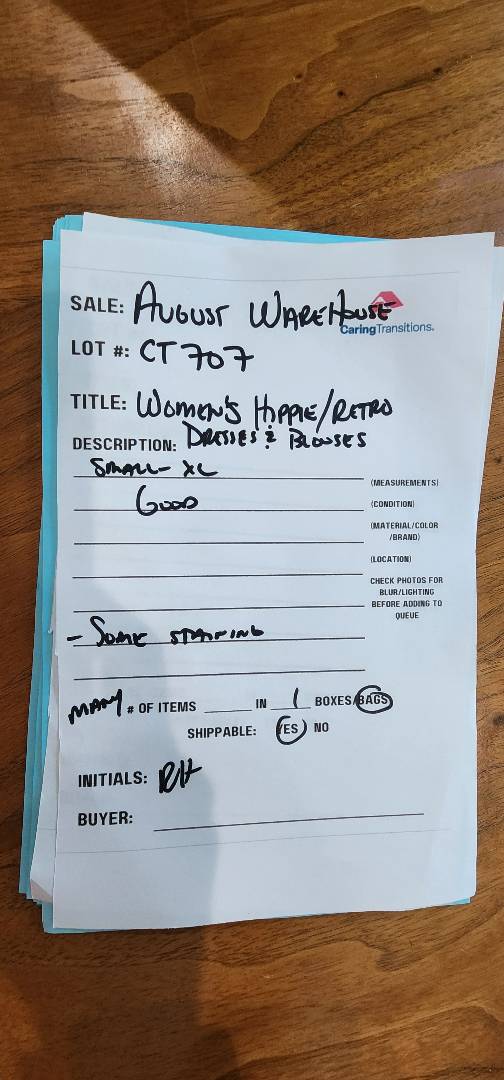 SALE: AUGUST WAREHOUSE
CaringTransitions.
LOT #: CT 707
TITLE: WOMEN'S HIPPIE/RETRO
DESCRIPTION: DRESSES & BLOUSES
SMALL - XL
(MEASUREMENTS)
GOOD
(CONDITION)
(MATERIAL/COLOR
/BRAND)
(LOCATION)
CHECK PHOTOS FOR
BLUR/LIGHTING
BEFORE ADDING TO
QUEUE
- SOME STAINING
MANY # OF ITEMS IN 1 BOXES/BAGS
SHIPPABLE: YES NO
INITIALS: RH
BUYER: